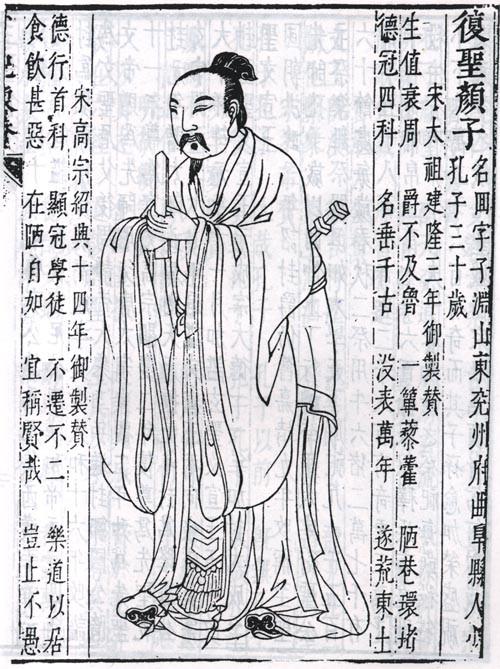 復聖顏子
名囘字子淵山東兖州府曲阜縣人少
孔子三十歲
宋太祖建隆三年御製贊
生值衰周 爵不及魯 一簞藜藿 陋巷環堵
德冠四科 名垂千古 没表萬年 遂荒東土
宋高宗紹興十四年御製贊
德行首科 顯冠學徒 不遷不二 樂道以居
食飲甚惡 在陋自如 宜稱賢哉 豈止不愚